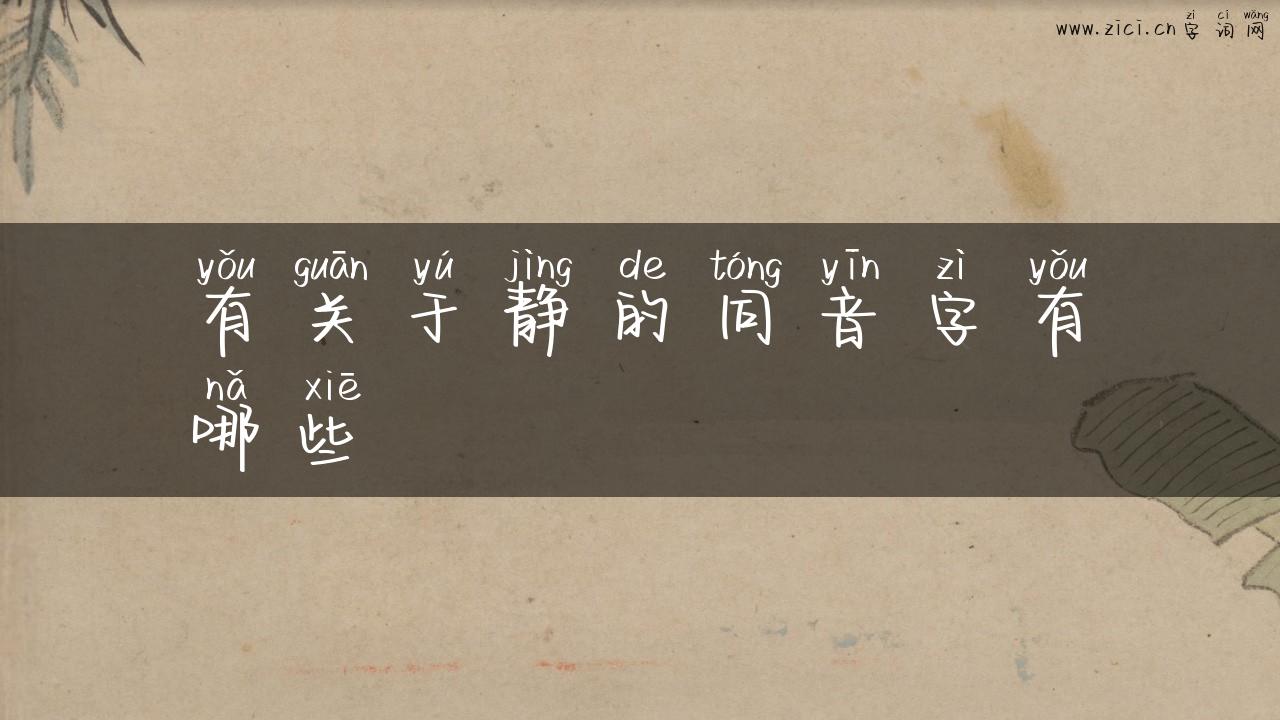 zì cí wǎng
www.zici.cn 字 词 网
yǒu guān yú jìng de tóng yīn zì yǒu
有 关 于 静 的 同 音 字 有
nǎ xiē
哪 些